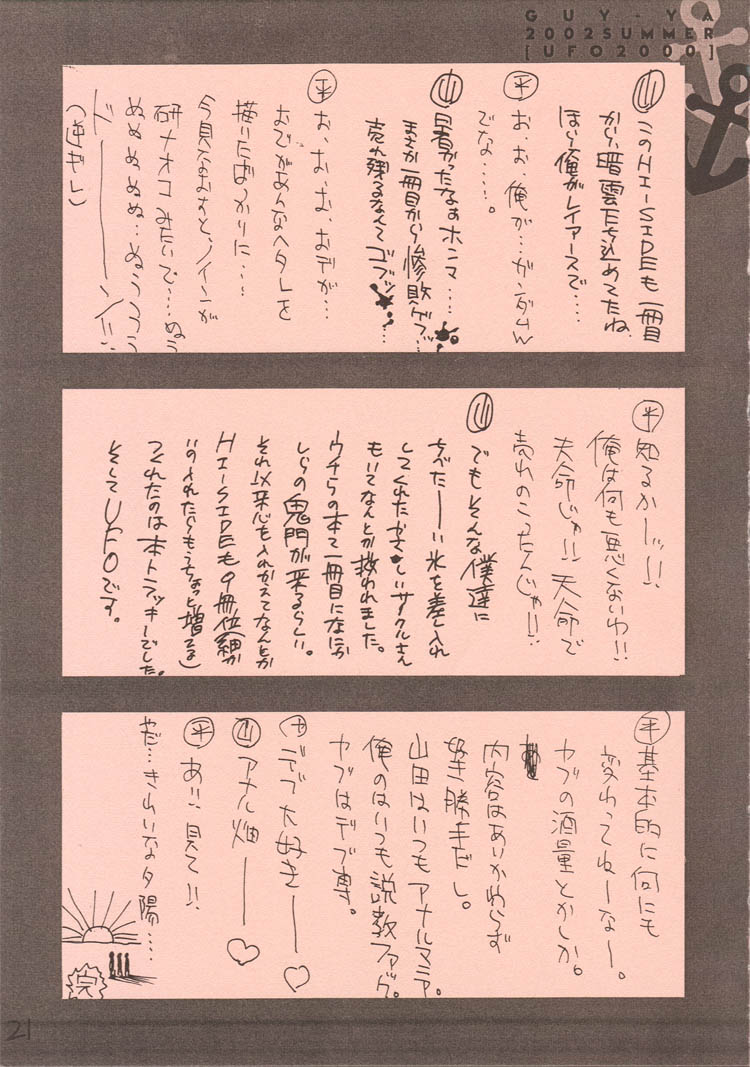 GUY-YA
2002SUMMER
[UFO2000]
山 このHI-SIDEも一冊目
から暗雲立ち込めてたね
ほら俺がレイアースで…‥
平 お、お、俺が…ガンダムW
でな…‥。
山 暑かったなぁホンマ…‥
まさか一冊目から惨敗ゲフッ…
売れ残るなんてゴブッ…
平 お、お、お、おデが…
おでがあんなヘタレを
描いたばっかりに…‥
今見なおすと、ノインが
研ナオコみたいで…ぬう
ぬぬぬぬぬ…ぬうううう
ド────ン!!
平 知るかーッ!!
俺は何も悪くないわ!!
天命じゃ!! 天命で
売れのこったんじゃ!!
山 でもそんな僕達に
ちべたーい氷を差し入れ
してくれたやさしいサークルさん
もいてなんとか救われました。
ウチらの本て一冊目になにか
しらの鬼門が来るらしい。
それ以来心も入れかえてなんとか
HI-SIDEも9冊位(細か
いの入れたらもうちょっと増える)
つくれたのは本トラッキーでした。
そしてUFOです。
平 基本的に何にも
変わってねーなー。
ヤブの酒量とかしか。
内容はあいかわらず
好き勝手だし。
山田はいつもアナルマニア。
俺のはいつも説教ファック。
ヤブはデブ専。
ヤ デブ大好き──♡
山 アナル畑──♡
平 あ!! 見て!!
やだ…きれいな夕陽…‥
完
21